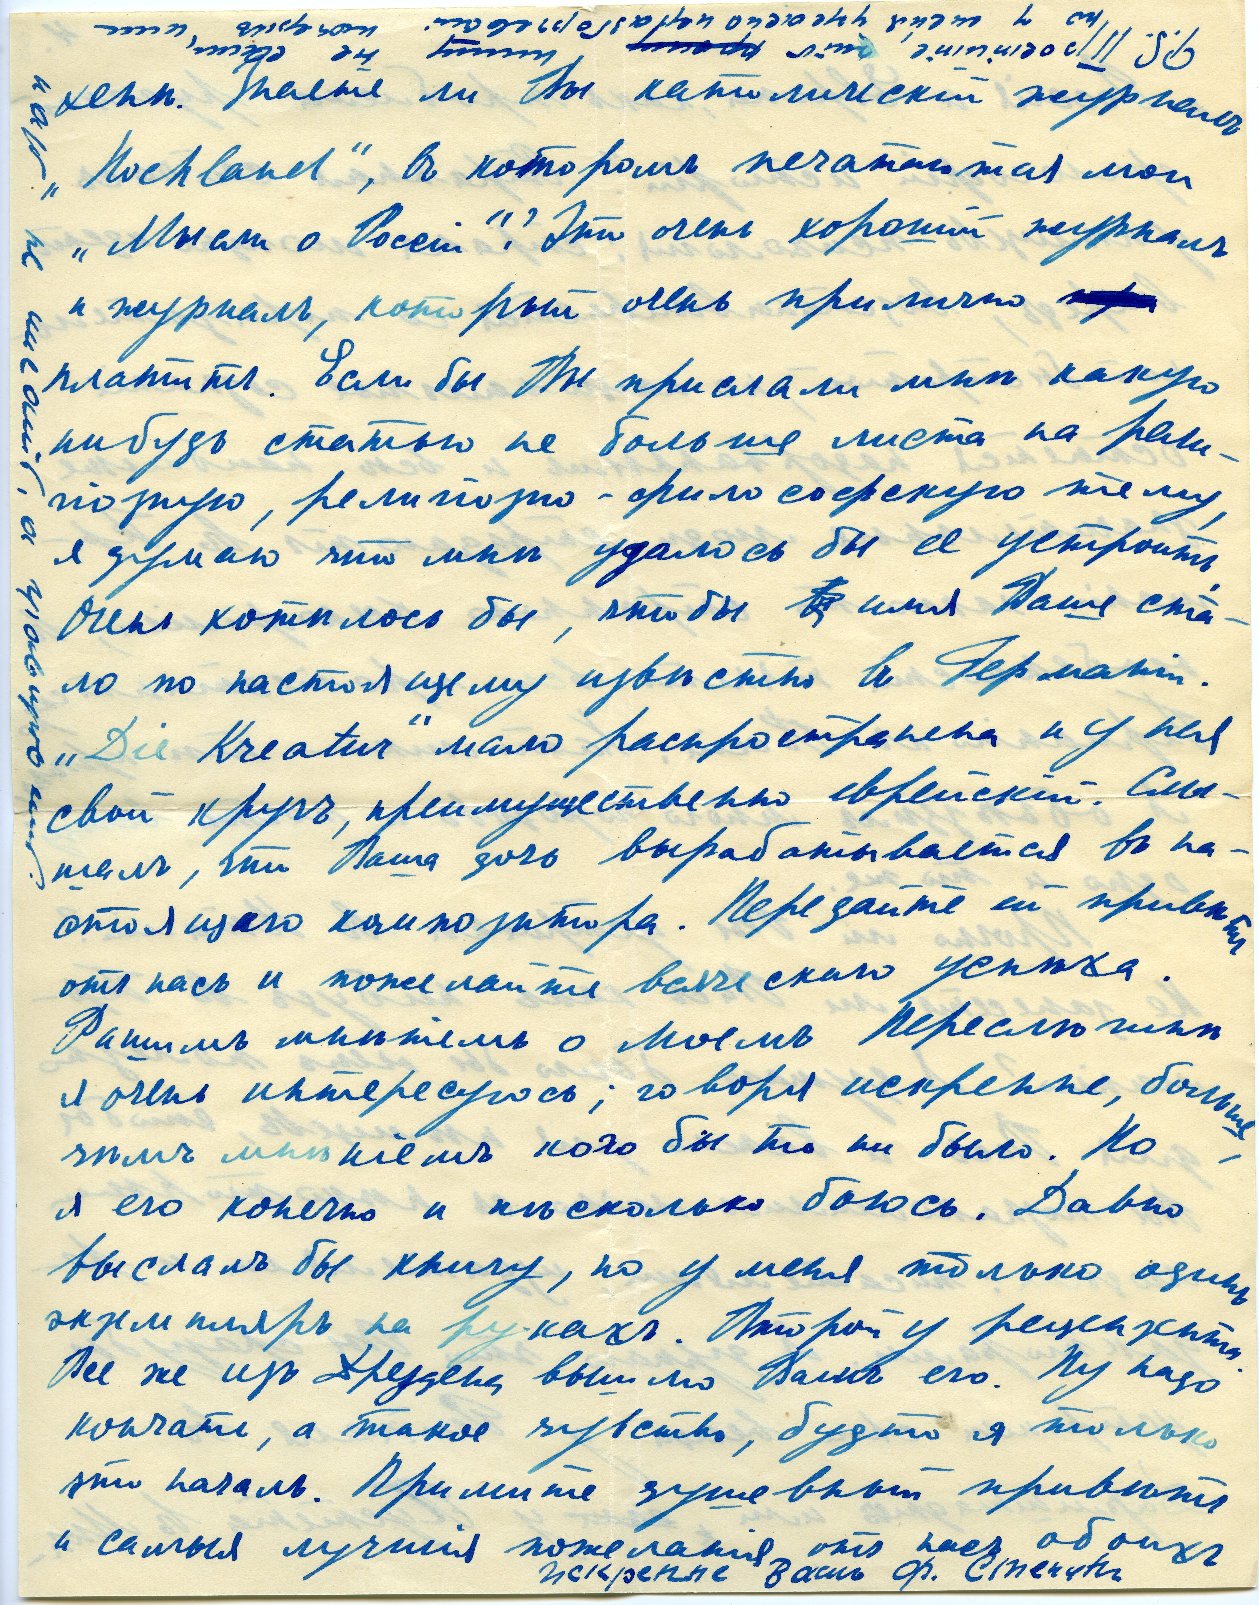 хенѣ. Знаете ли Вы католическій журналъ
„Hochland“, въ которомъ печатаются мои
„Мысли о Россіи“? Это очень хорошій журналъ
и журналъ, который очень прилично
платитъ. Если бы Вы прислали мнѣ какую
нибудь статью не больше листа на рели-
гіозную, религіозно-философскую тему,
я думаю что мнѣ удалось бы ее устроить.
Очень хотѣлось бы, чтобы имя Ваше ста-
ло по настоящему извѣстно въ Германіи.
„Die Kreatur“ мало распространена и у нея
свой кругъ, преимущественно еврейскій. Слы-
шалъ, что Ваша дочь вырабатывается въ на-
стоящаго композитора. Передайте ей привѣтъ
отъ насъ и пожелайте всяческаго успѣха.
Вашимъ мнѣніемъ о моемъ Переслѣгинѣ
я очень интересуюсь; говоря искренне, больше,
чѣмъ мнѣніемъ кого бы то ни было. Но
я его конечно и нѣсколько боюсь. Давно
выслалъ бы книгу, но у меня только одинъ
экземпляръ на рукахъ. Второй у рецензента.
Все же изъ Дрездена вышлю Вамъ его. Ну надо
кончать, а такое чувство, будто я только
что началъ. Примите душевный привѣтъ
и самыя лучшія пожеланія отъ насъ обоихъ
Искренне Вашъ Ф. Степунъ
P.S. Простите, что пишу не свѣи,
но у меня